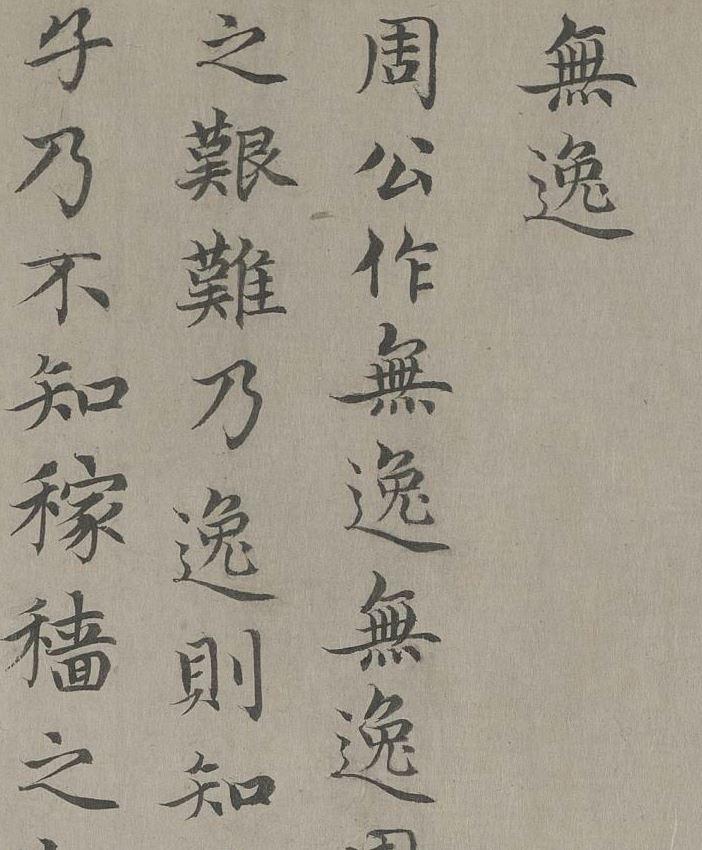 無逸
周公作無逸無逸周
之艱難乃逸則知
子乃不知稼穡之